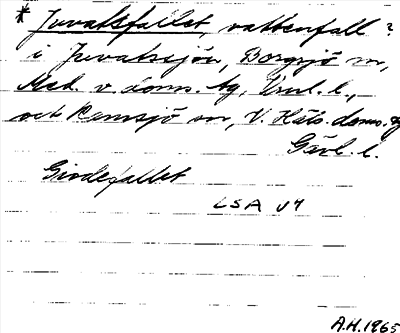 * Juvatsfallet, vattenfall ?
i Juvatssjön, Borgsjö sn,
Med. v. doms. tg, Vnl. l.,
och Ramsjö sn, V. Häls. doms. tg
Gävl. l.
Gimdefallet
LSA U4
A.H. 1965